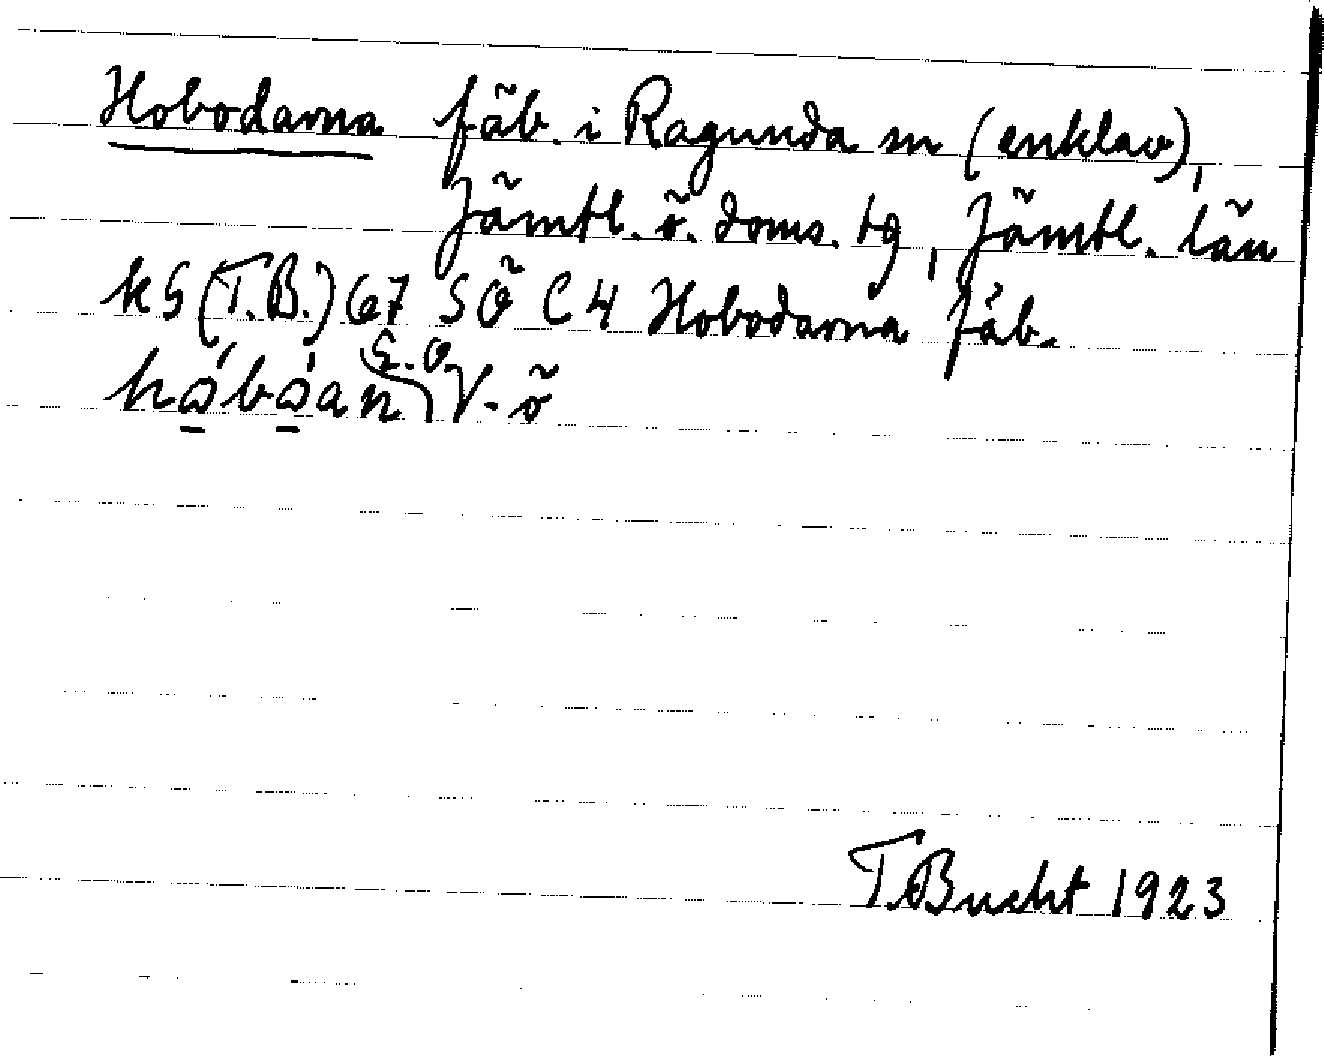 Hobodarna fäb. i Ragunda sn (enklav),
Jämtl. ö. doms. tg, Jämtl. län
kS (T.B.) 67 SÖ C4 Hobodarna fäb.
S.O. V-ö
T. Bucht 1923